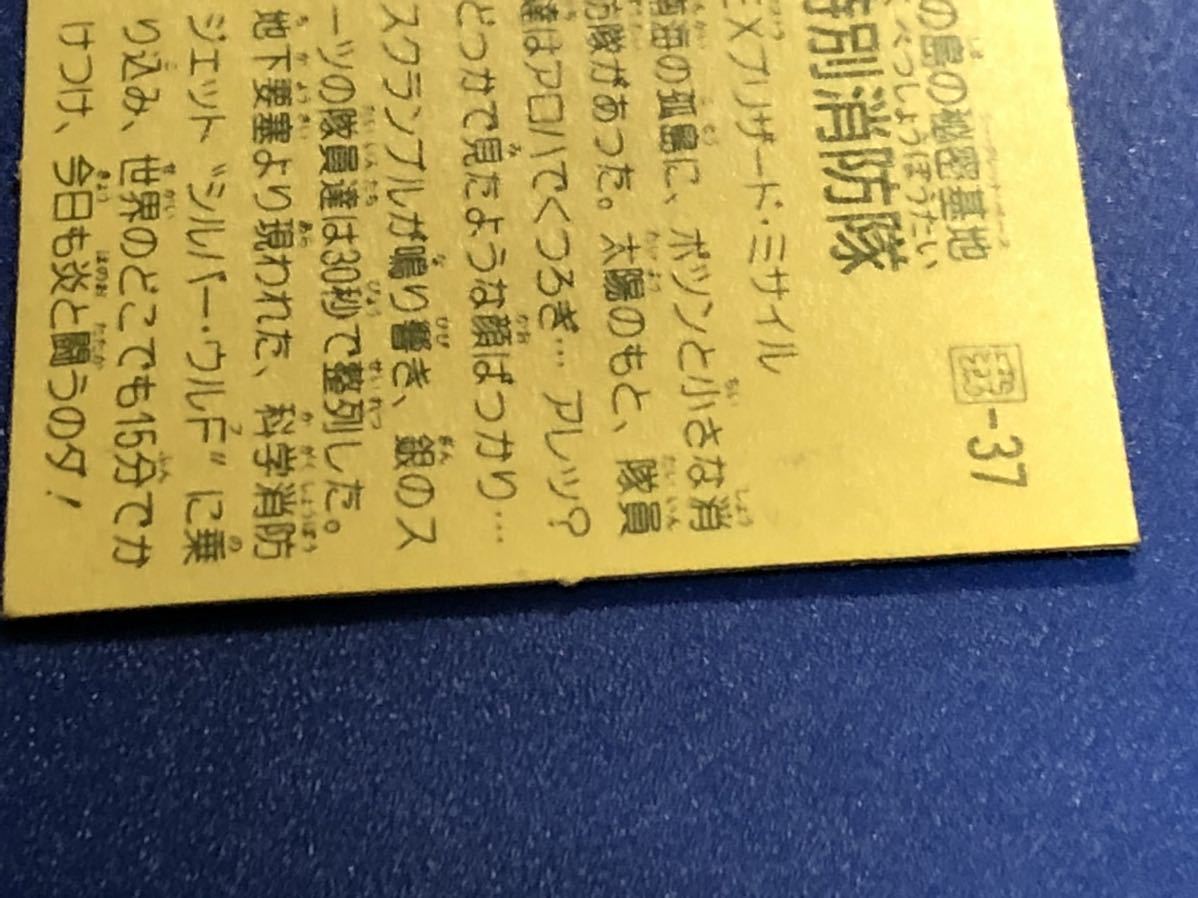 の島の秘密基地
べつしょうぼうたい
別消防隊
EXブリザード・ミサイル
の孤島に、ポツンと小さな消
防隊があった。太陽のもと、隊員
達はアロハでくつろぎ…アレッ?
どっかで見たような顔ばっかり…
スクランブルが鳴り響き、銀のス
ーツの隊員達は30秒で整列した。
地下要塞より現われた、科学消防
ジェット〝シルバー・ウルF〟に乗
り込み、世界のどこでも15分でか
けつけ、今日も炎と闘うのダ!
-37